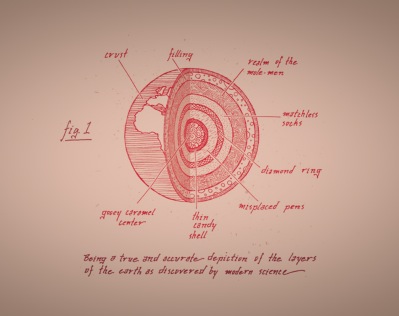 crust
filling
realm of the
mole-men
matchless
socks
fig. 1
diamond ring
misplaced pens
gooey caramel
center
thin
candy
shell
Being a true and accurate depiction of the layers
of the earth as discovered by modern science